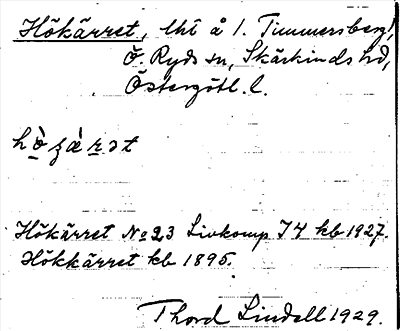 Hökärret, lht å 1. Timmersberg,
Ö. Ryds sn, Skärkinds hd,
Östergötl. l.
Hökärret No 23 Livkomp I 4 kb 1927.
Hökkärret kb 1895.
Thord Lindell 1929.